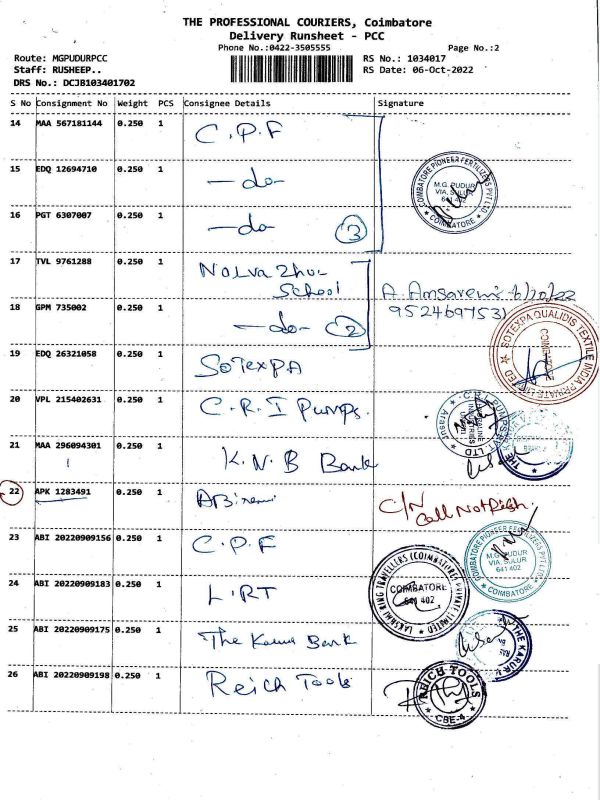 THE PROFESSIONAL COURIERS, Coimbatore
Delivery Runsheet - PCC
Phone No.:0422-3505555
Page No.:2
Route: MGPUDURPCC
RS No.: 1034017
Staff: RUSHEEP..
RS Date: 06-Oct-2022
DRS No.: DCJB103401702
S No Consignment No Weight PCS Consignee Details Signature
14 MAA 567181144 0.250 1 C.P.F
15 EDQ 12694710 0.250 1 -do-
COIMBATORE PIONEER FERTILIZERS PVT LTD
M.G. PUDUR
VIA. SULUR
641 402
COIMBATORE
16 PGT 6307007 0.250 1 -do- 3
17 TVL 9761288 0.250 1
School
6/10/22
18 GPM 735002 0.250 1 -do- 2
9524697531
SOTEXPA QUALIDIS TEXTILE INDIA PRIVATE LIMITED
COIMBATORE
19 EDQ 26321058 0.250 1 SOTEXPA
20 VPL 215402631 0.250 1 C.R.I Pumps.
21 MAA 296094301 0.250 1 K.N.B Bank
22 APK 1283491 0.250 1
C/N
23 ABI 20220909156 0.250 1 C.P.F
COIMBATORE PIONEER FERTILIZERS PVT LTD
M.G. PUDUR
VIA. SULUR
641 402
COIMBATORE
24 ABI 20220909183 0.250 1 L.RT
LAKSHMI RING TRAVELLERS (COIMBATORE) PRIVATE LIMITED
COIMBATORE
641 402
25 ABI 20220909175 0.250 1 The Karur Bank
THE KARUR
26 ABI 20220909198 0.250 1 Reich Tools
REICH TOOLS
CBE-4